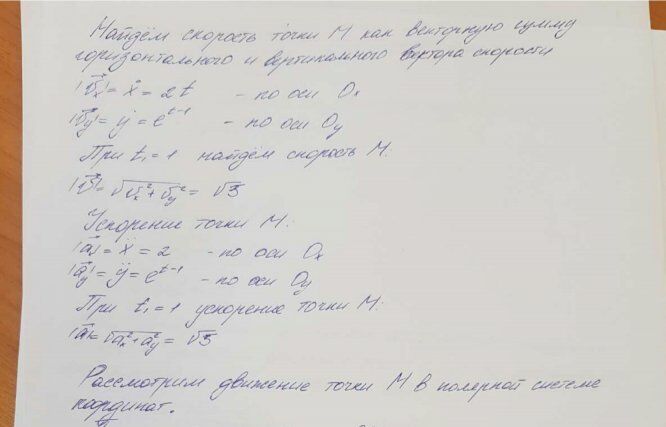 Найдём скорость точки M как векторную сумму
горизонтального и вертикального вектора скорости
|v⃗x| = ẋ = 2t - по оси Ox
|v⃗y| = ẏ = e^{t-1} - по оси Oy
При t₁ = 1 найдём скорость M.
|v⃗| = √(vx² + vy²) = √3
Ускорение точки M:
|a⃗x| = ẍ = 2 - по оси Ox
|a⃗y| = ÿ = e^{t-1} - по оси Oy
При t₁ = 1 ускорение точки M:
|a⃗| = √(ax² + ay²) = √3
Рассмотрим движение точки M в полярной системе
координат.